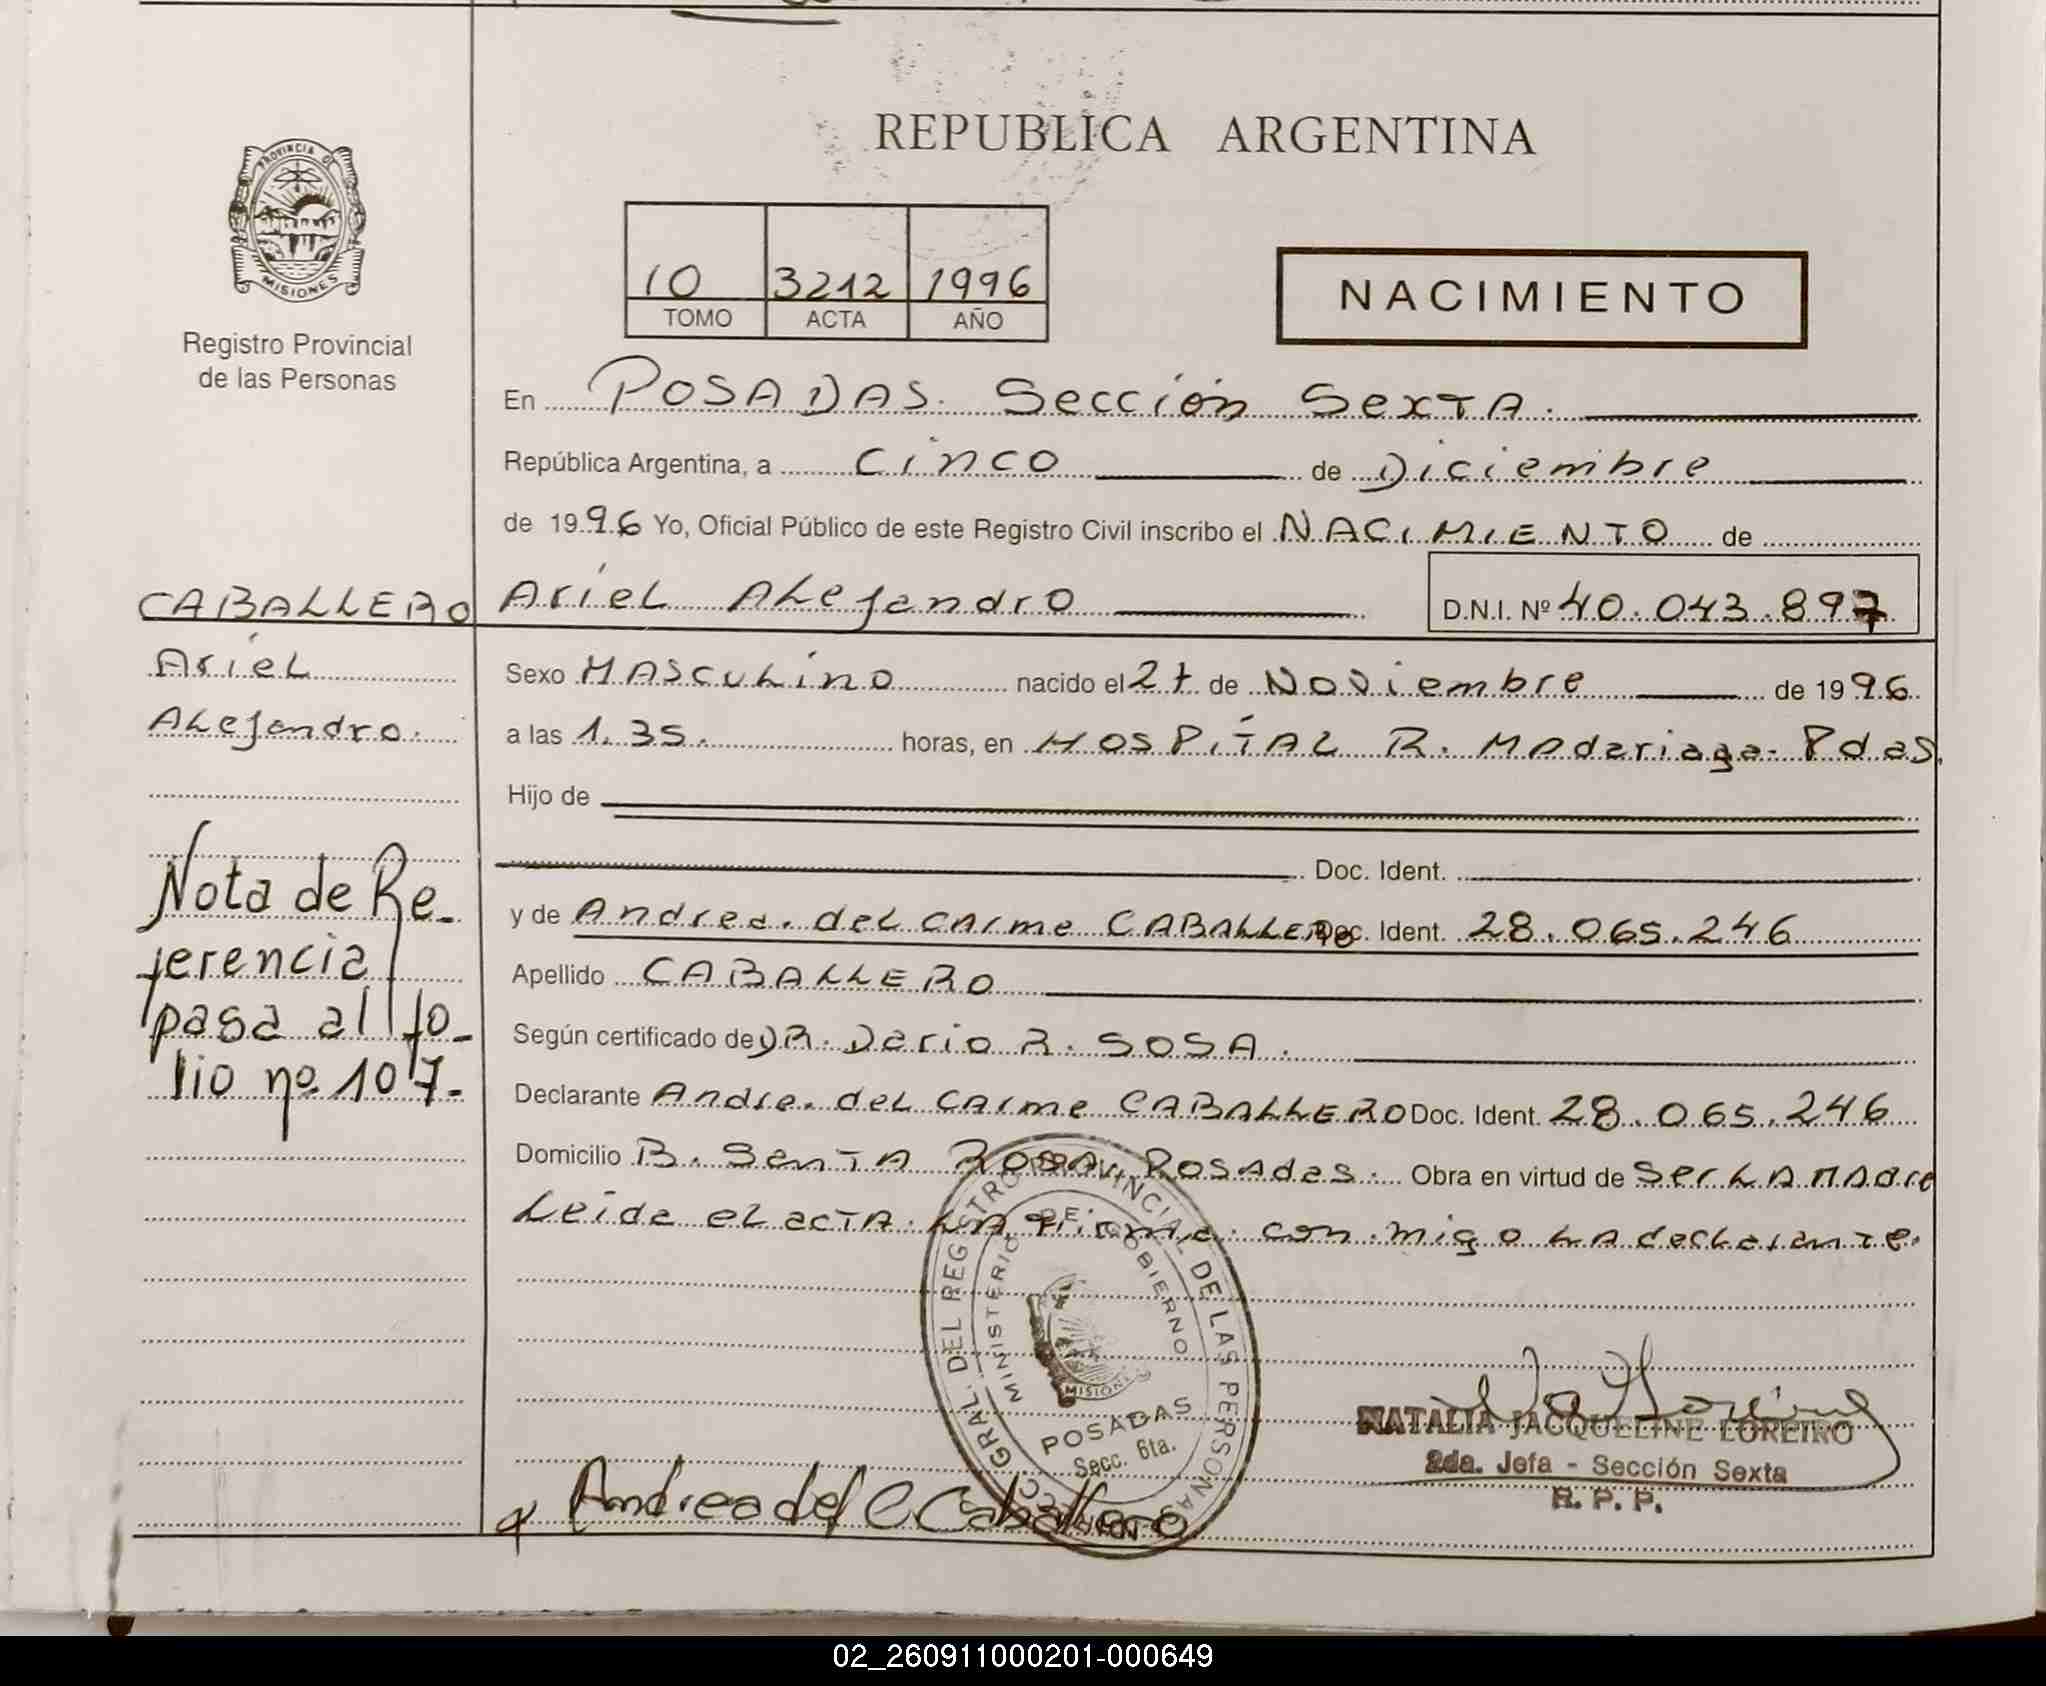 REPUBLICA ARGENTINA
PROVINCIA DE
MISIONES
Registro Provincial
de las Personas
10 3212 1996
TOMO ACTA AÑO
NACIMIENTO
En POSADAS. Sección Sexta.
República Argentina, a cinco de Diciembre
de 1996 Yo, Oficial Público de este Registro Civil inscribo el NACIMIENTO de
Ariel Alejandro D.N.I. Nº 40.043.897
CABALLERO
Ariel
Alejandro.
Sexo Masculino nacido el 27 de Noviembre de 1996
a las 1.35. horas, en HOSPITAL R. Madariaga - Pdas.
Hijo de
Doc. Ident.
y de Andrea del Carme CABALLERO Doc. Ident. 28.065.246
Apellido CABALLERO
Según certificado de DR. Dario R. SOSA.
Declarante Andrea del Carme CABALLERO Doc. Ident. 28.065.246
Domicilio B. Santa Rosa, Posadas. Obra en virtud de ser la madre
Leida el acta. la firma con migo la declarante.
Nota de Re-
ferencia
pasa al fo-
lio nº 107.
GRAL. DEL REGISTRO PROVINCIAL DE LAS PERSONAS
MINISTERIO DE GOBIERNO
MISIONES
POSADAS
Secc. 6ta.
NATALIA JACQUELINE LOREIRO
2da. Jefa - Sección Sexta
R. P. P.
Andrea del C Caballero
02_260911000201-000649